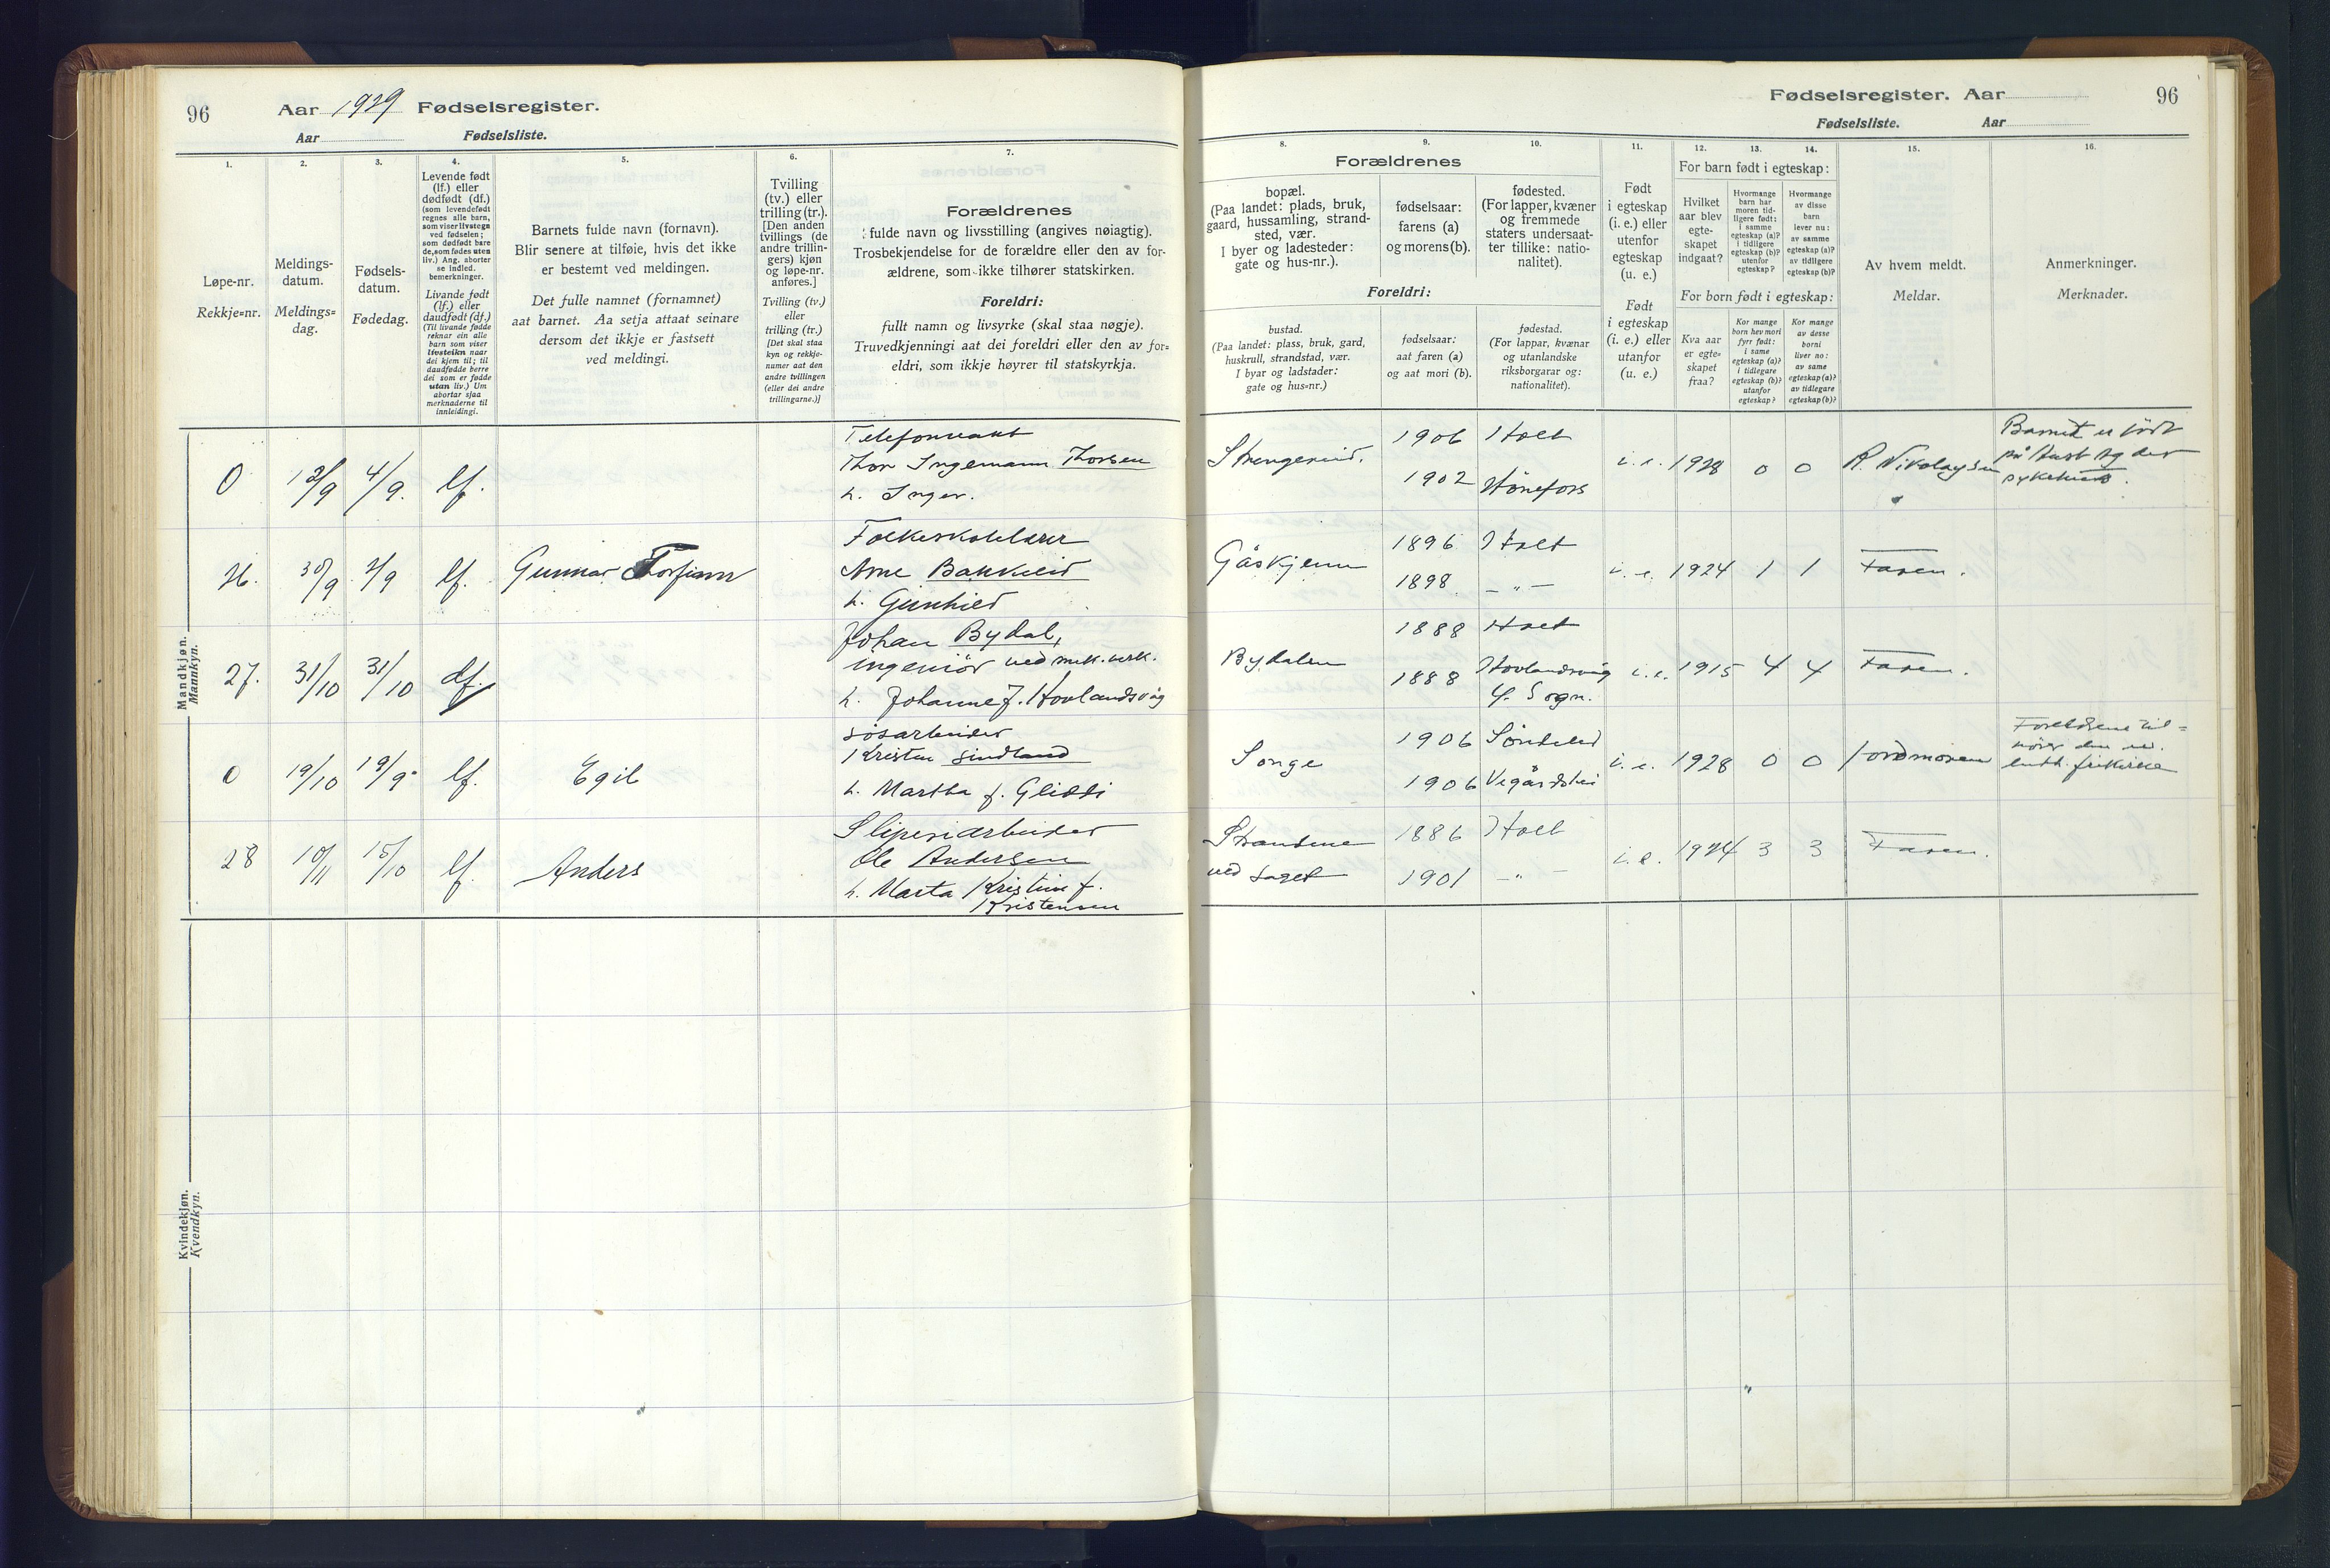 96
Aar 1929 Fødselsregister.
Aar Fødselsliste.
1.
Løpe-nr.
Rekkje=nr.
2.
Meldings-
datum.
Meldings=
dag.
3.
Fødsels-
datum.
Fødedag.
4.
Levende født
(lf.) eller
dødfødt (df.)
(som levendefødt
regnes alle barn,
som viser livstegn
ved fødselen;
som dødfødt bare
de, som fødes uten
liv.) Ang. aborter
se indled.
bemerkninger.
Livande født
(lf.) eller
daudfødt (df.)
(Til livande fødde
reknar ein alle
barn som viser
livsteikn naar
dei kjem til; til
daudfødde berre
dei som er fødde
utan liv.) Um
abortar sjaa
merknaderne til
innleidingi.
5.
Barnets fulde navn (fornavn).
Blir senere at tilføie, hvis det ikke
er bestemt ved meldingen.
Det fulle namnet (fornamnet)
aat barnet. Aa setja attaat seinare
dersom det ikkje er fastsett
ved meldingi.
6.
Tvilling
(tv.) eller
trilling (tr.).
[Den anden
tvillings (de
andre trillin-
gers) kjøn
og løpe-nr.
anføres.]
Tvilling (tv.)
eller
trilling (tr.)
[Det skal staa
kyn og rekkje-
numer aat den
andre tvillingen
(eller dei andre
trillingarne.)]
7.
Forældrenes
fulde navn og livsstilling (angives nøiagtig).
Trosbekjendelse for de forældre eller den av for-
ældrene, som ikke tilhører statskirken.
Foreldri:
fullt namn og livsyrke (skal staa nøgje).
Truvedkjenningi aat dei foreldri eller den av for=
eldri, som ikkje høyrer til statskyrkja.
Mandkjøn.
Mannkyn.
0 13/9 4/9. lf.
Telefonvakt
Thor Ingemann Thorsen
h. Inger.
26. 30/9 2/9 lf. Gunnar Thorfinn
Folkeskolelærer
Arne Bakkeid
h. Gunhild
27. 31/10 31/10 df.
Johan Bydal,
ingeniör ved mek. verk.
h. Johanne f. Hovlandsvåg
0 19/10 19/9. lf. Egil
Kristen Sindland
h. Martha f. Gliddi
28 10/11 15/10 lf. Anders
Sliperiarbeider
Ole Andersen
h. Marta Kristine f.
Kristensen
Kvindekjøn.
Kvendkyn.
Fødselsregister. Aar
96
Fødselsliste. Aar
8.
Forældrenes
bopæl.
(Paa landet: plads, bruk,
gaard, hussamling, strand-
sted, vær.
I byer og ladesteder:
gate og hus-nr.).
Foreldri:
bustad.
(Paa landet: plass, bruk, gard,
huskrull, strandstad, vær.
I byar og ladstader:
gate og hus=nr.)
9.
fødselsaar:
farens (a)
og morens (b).
fødselsaar:
aat faren (a)
og aat mori (b).
10.
fødested.
(For lapper, kvæner
og fremmede
staters undersaat-
ter tillike: natio-
nalitet).
fødestad.
(For lappar, kvænar
og utanlandske
riksborgarar og:
nationalitet).
11.
Født
i egteskap
(i. e.) eller
utenfor
egteskap
(u. e.)
Født
i egteskap
(i. e.) eller
utanfor
(u. e.)
12. 13. 14.
For barn født i egteskap:
Hvilket
aar blev
egte-
skapet
indgaat?
Hvormange
barn har
moren tid-
ligere født:
i samme
egteskap (a)?
i tidligere
egteskap (b)?
utenfor
egteskap?
Hvormange
av disse
barn
lever nu:
av samme
egteskap (a)?
av tidligere
egteskap (b)?
For born født i egteskap:
Kva aar
er egte=
skapet
fraa?
Kor mange
born hev mori
fyrr født:
i same
egteskap (a)?
i tidlegare
egteskap (b)?
utanfor
egteskap?
Kor mange
av desse
borni
liver no:
av same
egteskap (a)?
av tidlegare
egteskap (b)?
15.
Av hvem meldt.
Meldar.
16.
Anmerkninger.
Merknader.
Strengereid.
1906 Holt
1902 Hönefoss
i. e. 1928 0 0 R. Nikolaysen
Barnet er født
på Aust Agder
sykehus.
Gåskjenn
1896 Holt
1898 — " —
i. e. 1924 1 1 Faren.
Bydalen
1888 Holt
1888 Hovlandsvåg
Y. Sogn.
i. e. 1915 4 4 Faren.
Songe
1906 Söndeled
1906 Vegårdshei
i. e. 1928 0 0 Jordmoren
Foreldrene til=
hører den ev.
luth. frikirke
Strandene
ved Saget
1886 Holt
1901 — " —
i. e. 1924 3 3 Faren.